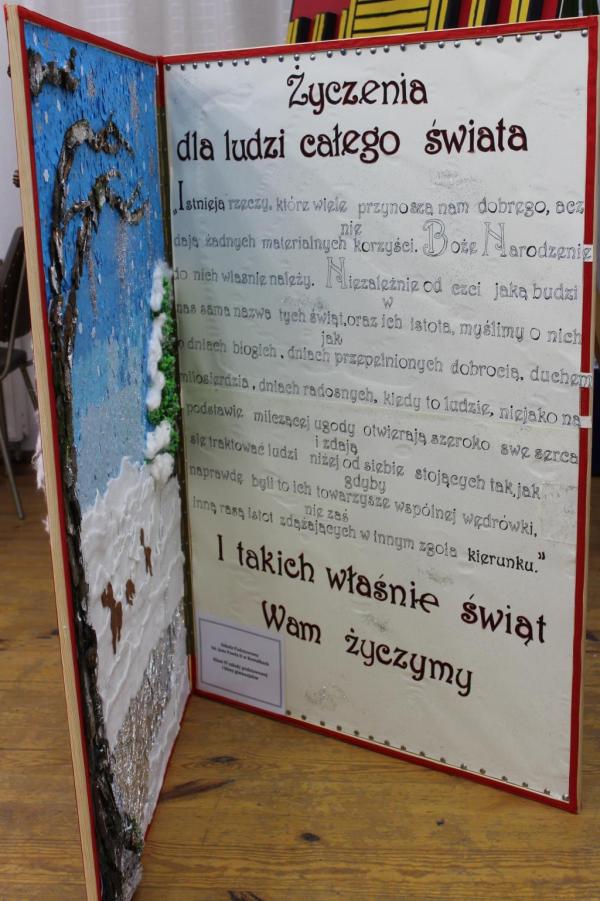 Życzenia
dla ludzi całego świata
„Istnieją rzeczy, które wiele przynoszą nam dobrego, acz
nie
dają żadnych materialnych korzyści. Boże Narodzenie
do nich właśnie należy. Niezależnie od czci jaką budzi
w
nas sama nazwa tych świąt, oraz ich istota, myślimy o nich
jak
o dniach błogich, dniach przepełnionych dobrocią, duchem
miłosierdzia, dniach radosnych, kiedy to ludzie, niejako na
podstawie milczącej ugody otwierają szeroko swe serca
i zdają
się traktować ludzi niżej od siebie stojących tak, jak
gdyby
naprawdę byli to ich towarzysze wspólnej wędrówki,
nie zaś
inną rasą istot zdążających w innym zgoła kierunku.”
I takich właśnie świąt
Wam życzymy
Szkoła Podstawowa
im. Jana Pawła II w
Klasa IV szkoły podstawowej
i klasy gimnazjalne